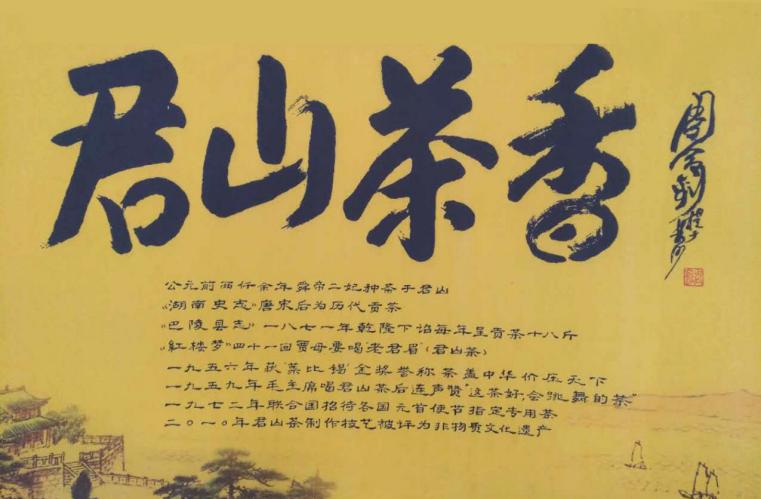 君山茶香
公元前西仟余年舜帝二妃种茶于君山
《湖南史志》唐宋后为历代贡茶
《巴陵县志》一八七一年乾隆下诏每年呈贡茶十八斤
《红楼梦》四十一回贾母要喝老君眉(君山茶)
一九五六年获"莱比锡"金奖誉称茶盖中华价压天下
一九五九年毛主席喝君山茶后连声赞"这茶好,会跳舞的茶"
一九七二年联合国招待各国元首使节指定专用茶
二〇一〇年君山茶制作技艺被评为非物质文化遗产